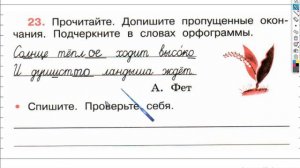 23. Прочитайте. Допишите пропущенные окон-
чания. Подчеркните в словах орфограммы.
Солнце тёплое ходит высоко
И душистого ландыша ждёт.
А. Фет
Спишите. Проверьте себя.